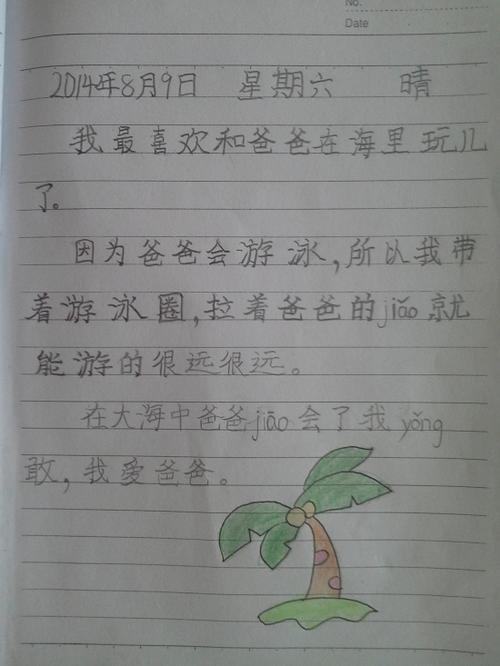 No.
Date
2014年8月9日 星期六 晴
我最喜欢和爸爸在海里玩儿
了。
因为爸爸会游泳,所以我带
着游泳圈,拉着爸爸的jiǎo就
能游的很远很远。
在大海中爸爸jiāo会了我yǒng
敢,我爱爸爸。